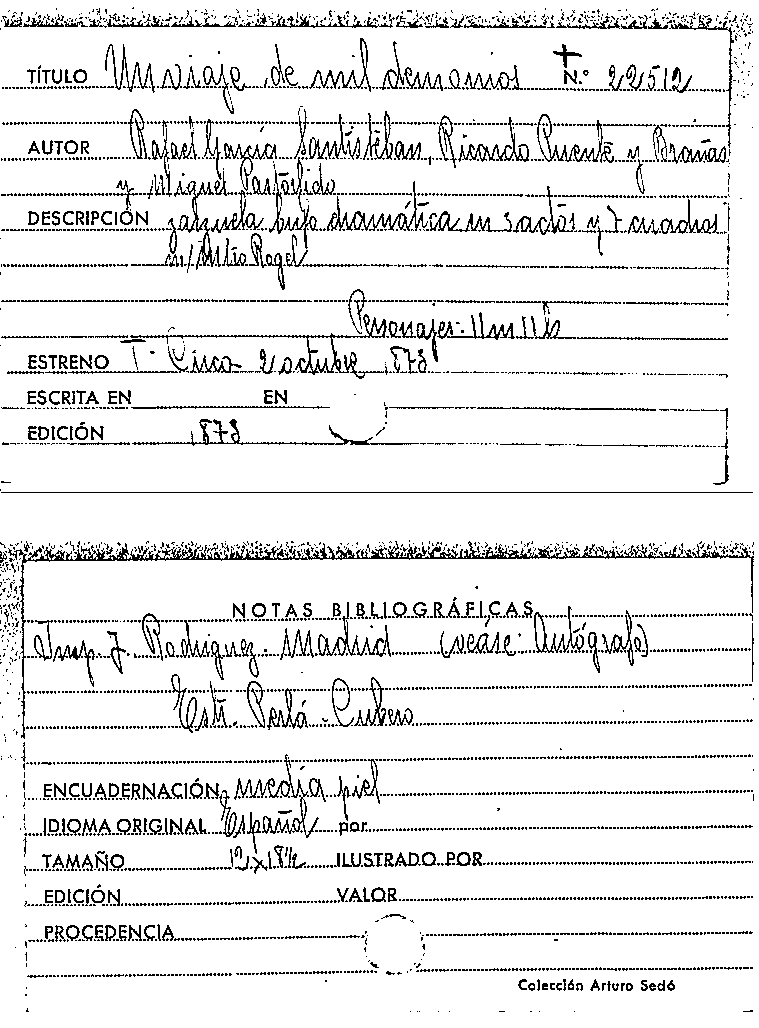 TÍTULO Un viaje de mil demonios N.º 22512
AUTOR Rafael García Santisteban, Ricardo Puente y Brañas
y Miguel Pastorfido
DESCRIPCIÓN zarzuela bufo dramática en 3 actos y 7 cuadros
m/ Mtro Rogel
Personajes: 11 m 11 h
ESTRENO T. Circo 2 octubre 1873
ESCRITA EN EN
EDICIÓN 1873
NOTAS BIBLIOGRÁFICAS
Imp. J. Rodriguez. Madrid (veáse: Autógrafo)
Estr. Perlá - Cubero
ENCUADERNACIÓN media piel
IDIOMA ORIGINAL Español por
TAMAÑO 12 x 18½ ILUSTRADO POR
EDICIÓN VALOR
PROCEDENCIA
Colección Arturo Sedó